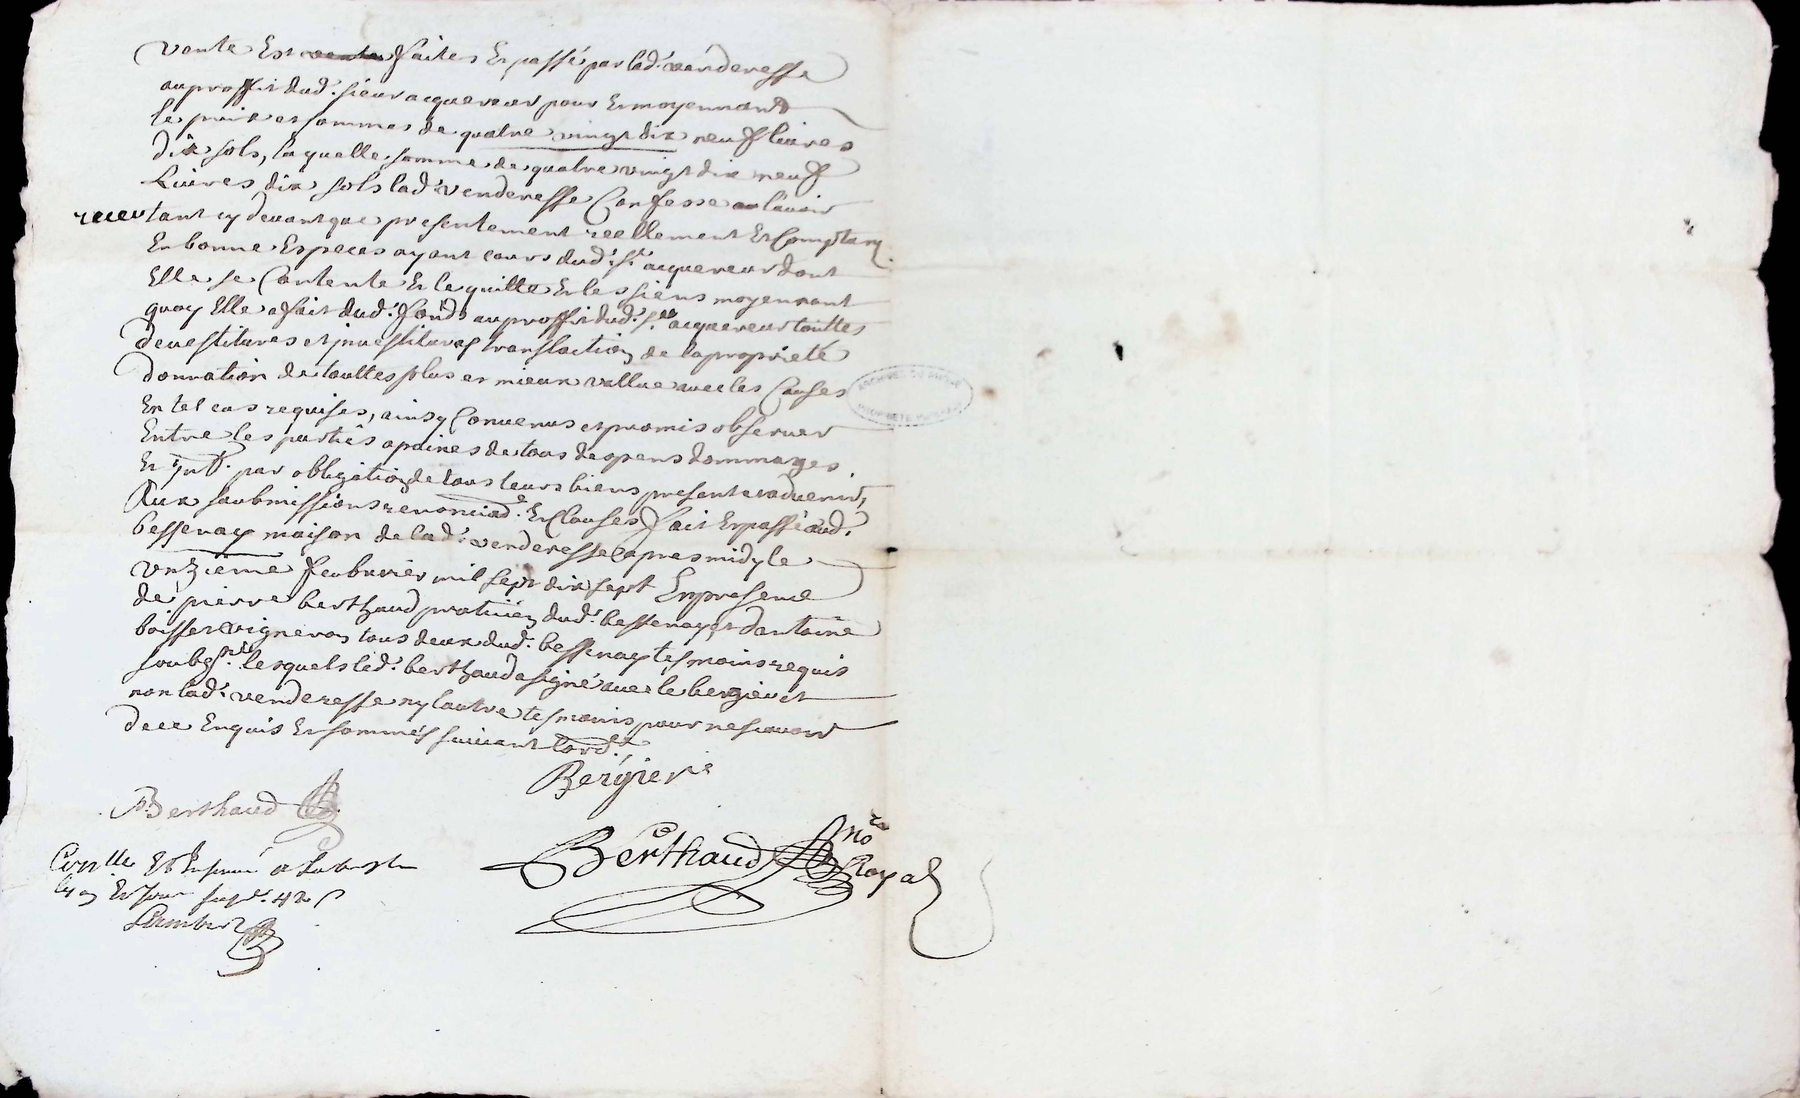 vente Est vente faites Et passé par lad. venderesse
au proffit dud. sieur acquereur pour Et moyennant
le prix et sommes de quatre vingt dix neuf livres
dix sols, laquelle somme de quatre vingt dix neuf
Livres dix sols lad. venderesse Confesse avoir
receu tant cy devant que presentement reellement Et Comptant
En bonne Especes ayant cours dud. sr. acquereur dont
Elle se Contente Et le quitte Et les siens moyennant
quoy Elle a fait dud. fond au proffit dud. sr. acquereur touttes
devestitures et investitures translaction de la proprieté
donnation de touttes plus et mieux vallue avec les Clauses
En tel cas requises, ainsy Convenus et promis observer
Entre les partiës a paines de tous despens dommages
Et Int. par obligation de tous leurs biens present et advenir,
Aux soubmissions renonciaon. Et Clauses fait Et passé aud.
bessenay maison de lad. venderesse apres midy le
unzieme feubvrier mil sept dix sept En presence
de pierre berthaud praticien dud. bessenay et d'antoine
boisset vigneron tous deux dud. bessenay tesmoins requis
soubsnes. lesquels led. berthaud a signé avec le bergier et
non lad. venderesse ny lautre tesmoins pour ne scavoir
de ce Enquis Et sommés suivant lord.ce
Bergier
Berthaud
Berthaud no.re
Royal
Con.lle Et Insinué a